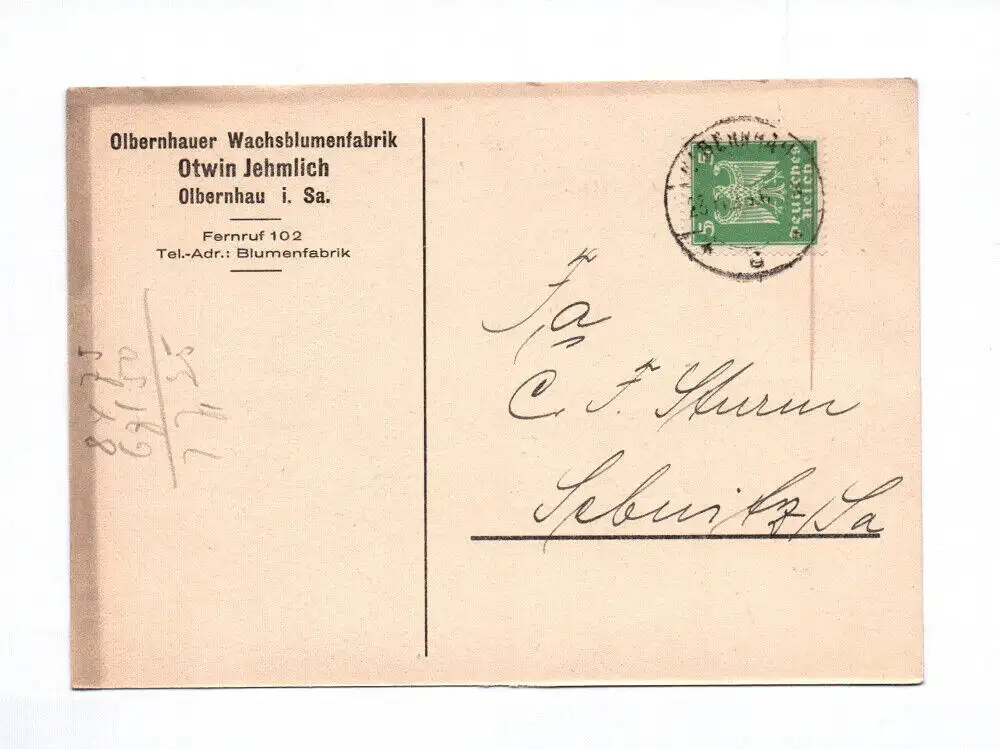 Olbernhauer Wachsblumenfabrik
Otwin Jehmlich
Olbernhau i. Sa.
Fernruf 102
Tel.-Adr.: Blumenfabrik
5
Deutsches
Reich
Fa
C. F. Sturm
Sebnitz/Sa